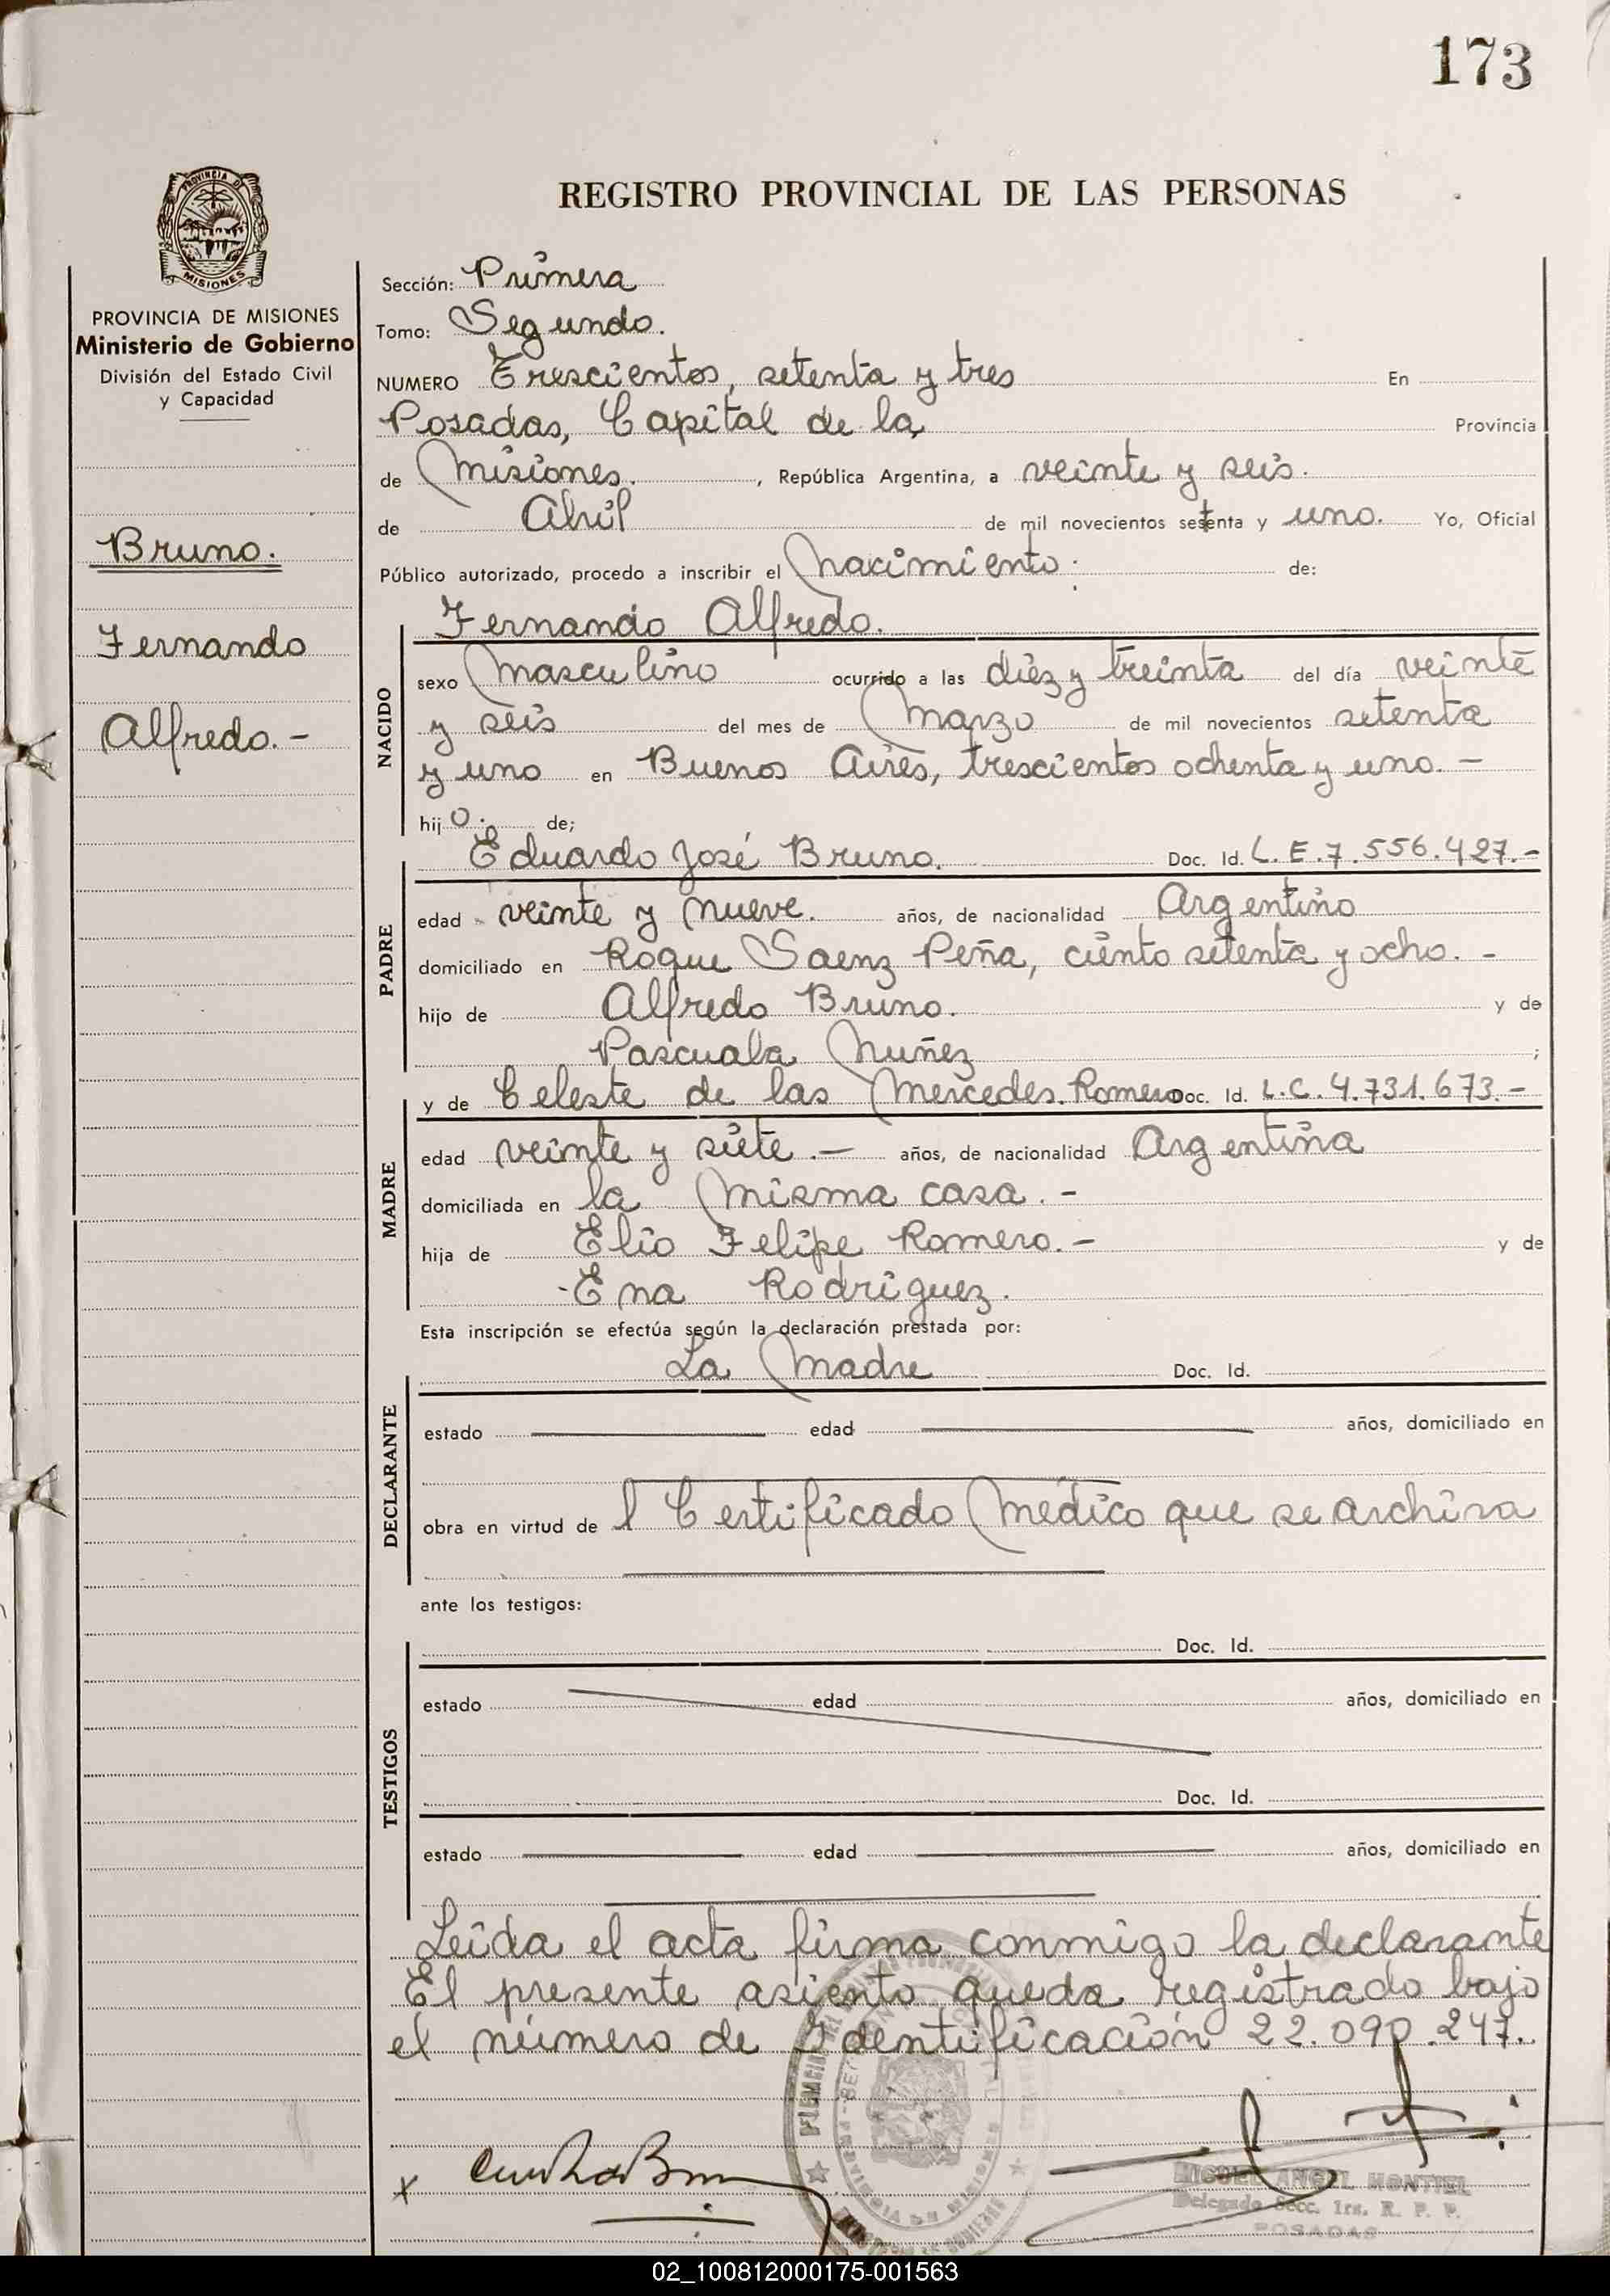 173
PROVINCIA DE
MISIONES
REGISTRO PROVINCIAL DE LAS PERSONAS
PROVINCIA DE MISIONES
Ministerio de Gobierno
División del Estado Civil
y Capacidad
Bruno.
Fernando
Alfredo.-
Sección: Primera
Tomo: Segundo.
NUMERO Trescientos, setenta y tres En
Posadas, Capital de la Provincia
de Misiones. , República Argentina, a veinte y seis.
de Abril de mil novecientos setenta y uno. Yo, Oficial
Público autorizado, procedo a inscribir el Nacimiento. de:
Fernando Alfredo.
NACIDO
sexo Masculino ocurrido a las diez y treinta del día veinte
y seis del mes de Marzo de mil novecientos setenta
y uno en Buenos Aires, trescientos ochenta y uno.-
hijo. de;
Eduardo José Bruno. Doc. Id. L.E.7.556.427.-
PADRE
edad veinte y nueve. años, de nacionalidad Argentino
domiciliado en Roque Saenz Peña, ciento setenta y ocho.-
hijo de Alfredo Bruno. y de
Pascuala Nuñez ;
y de Celeste de las Mercedes. Romero Doc. Id. L.C.4.731.673.-
MADRE
edad veinte y siete.- años, de nacionalidad Argentina
domiciliada en la misma casa.-
hija de Elio Felipe Romero.- y de
Ena Rodriguez.
Esta inscripción se efectúa según la declaración prestada por:
La Madre Doc. Id.
DECLARANTE
estado edad años, domiciliado en
obra en virtud de l Certificado Médico que se archiva
ante los testigos:
Doc. Id.
TESTIGOS
estado edad años, domiciliado en
Doc. Id.
estado edad años, domiciliado en
Leída el acta firma conmigo la declarante
El presente asiento queda registrado bajo
el número de Identificación 22.090.247.
x
MIGUEL ANGEL MONTIEL
Delegado Secc. 1ra. R. P. P.
POSADAS
02_100812000175-001563